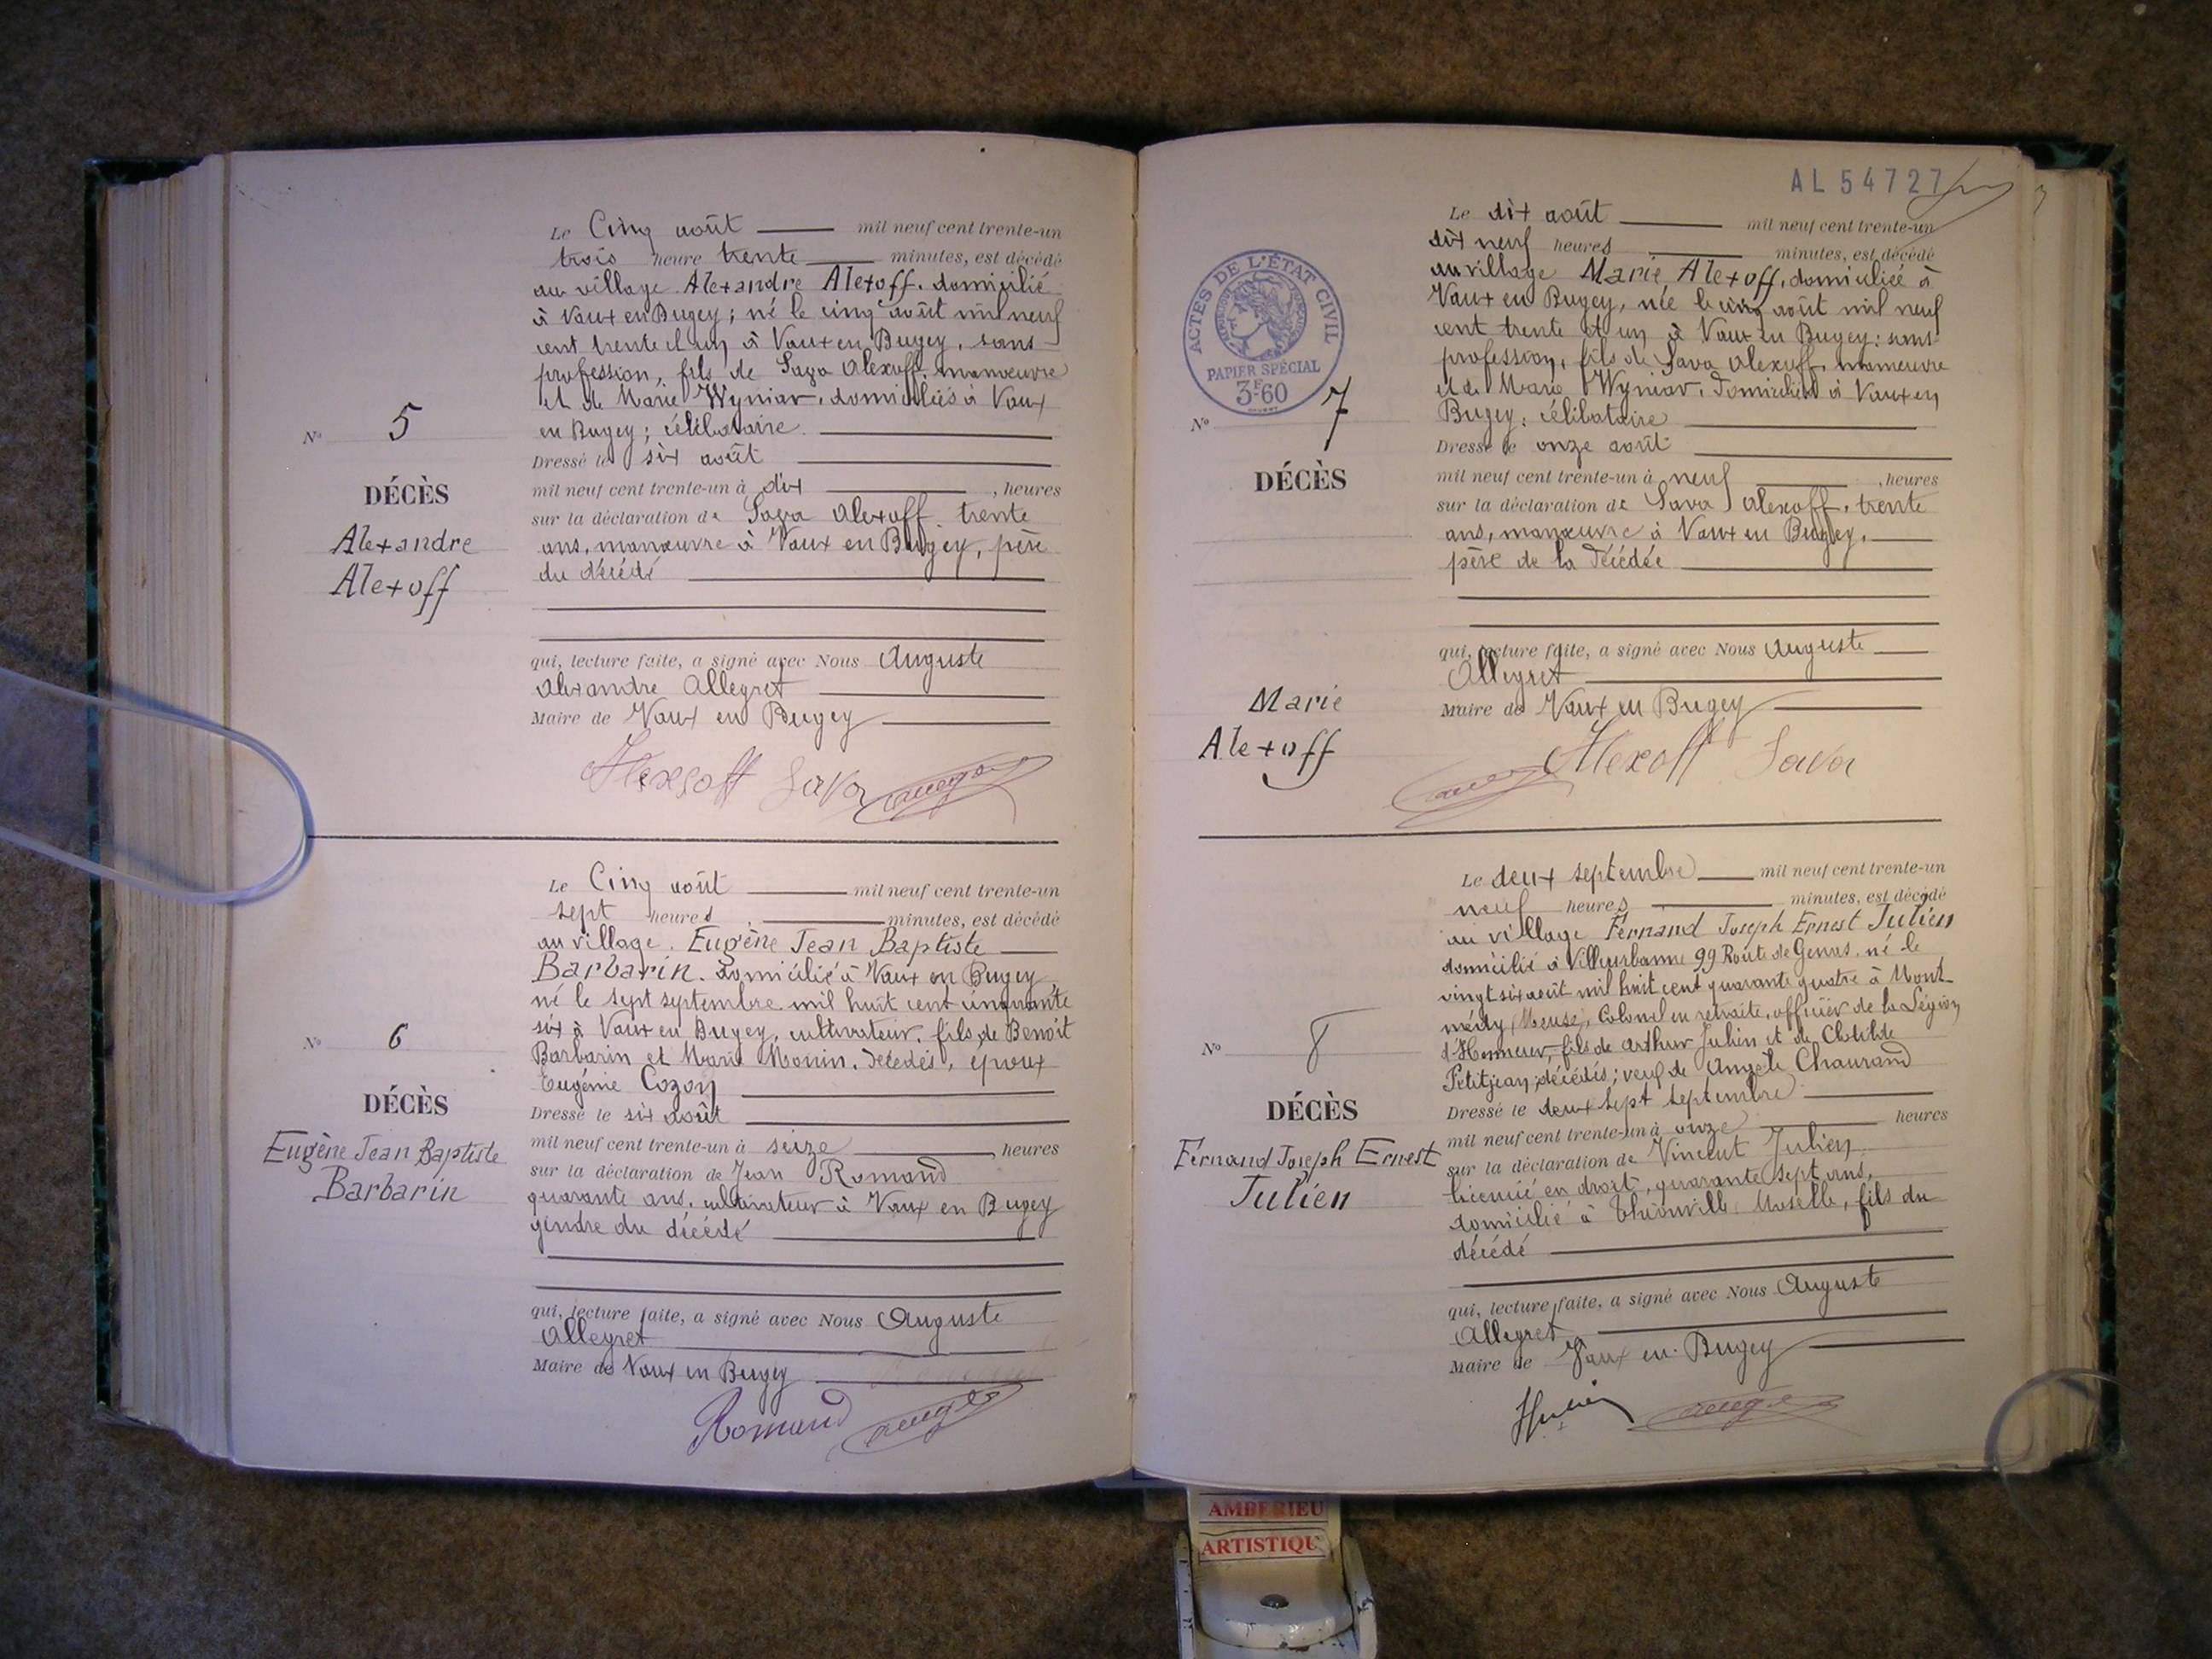 Le Cinq août mil neuf cent trente-un
trois heure trente minutes, est décédé
au village Alexandre Alexoff. domicilié
à Vaux en Bugey; né le cinq août mil neuf
cent trente et un à Vaux en Bugey, sans
profession, fils de Sava Alexoff, manœuvre
et de Marie Wyniar, domiciliés à Vaux
en Bugey; célibataire.
N° 5
Dressé le six août
DÉCÈS
mil neuf cent trente-un à dix , heures
sur la déclaration de Sava Alexoff, trente
Alexandre
ans, manœuvre à Vaux en Bugey, père
Alexoff
du décédé
qui, lecture faite, a signé avec Nous Auguste
Alexandre Allegret
Maire de Vaux en Bugey
Alexsoff Sava
Le Cinq août mil neuf cent trente-un
sept heures minutes, est décédé
au village. Eugène Jean Baptiste
Barbarin. domicilié à Vaux en Bugey
né le sept septembre mil huit cent cinquante
six à Vaux en Bugey, cultivateur, fils de Benoît
N° 6
Barbarin et Marie Monin, décédés, époux
Eugénie Cozon
DÉCÈS
Dressé le six août
Eugène Jean Baptiste
mil neuf cent trente-un à seize , heures
sur la déclaration de Jean Romand
Barbarin
quarante ans, cultivateur à Vaux en Bugey
gendre du décédé
qui, lecture faite, a signé avec Nous Auguste
Allegret
Maire de Vaux en Bugey
Romand
AL 54727
Le dix août mil neuf cent trente-un
dix neuf heures minutes, est décédé
au village Marie Alexoff, domiciliée à
Vaux en Bugey, née le cinq août mil neuf
cent trente et un à Vaux en Bugey: sans
profession, fils de Sava Alexoff, manœuvre
et de Marie Wyniar, domiciliés à Vaux en
Bugey; célibataire
ACTES DE L'ÉTAT CIVIL
PAPIER SPÉCIAL
3F60
N° 7
Dressé le onze août
DÉCÈS
mil neuf cent trente-un à neuf , heures
sur la déclaration de Sava Alexoff, trente
ans, manœuvre à Vaux en Bugey,
père de la décédée
qui, lecture faite, a signé avec Nous Auguste
Allegret
Marie
Maire de Vaux en Bugey
Alexoff
Alexoff Sava
Le deux septembre mil neuf cent trente-un
neuf heures minutes, est décédé
au village Fernand Joseph Ernest Julien
domicilié à Villeurbanne 99 Route de Genas. né le
vingt six août mil huit cent quarante quatre à Mont-
médy (Meuse), Colonel en retraite, officier de la Légion
d'Honneur, fils de Arthur Julien et de Clotilde
N° 8
Petitjean, décédés; veuf de Angèle Chaurand
DÉCÈS
Dressé le deux sept septembre
mil neuf cent trente-un à onze heures
Fernand Joseph Ernest
sur la déclaration de Vincent Julien
Julien
licencié en droit, quarante sept ans,
domicilié à Thionville Moselle, fils du
décédé
qui, lecture faite, a signé avec Nous Auguste
Allegret
Maire de Vaux en Bugey
AMBERIEU
ARTISTIQU